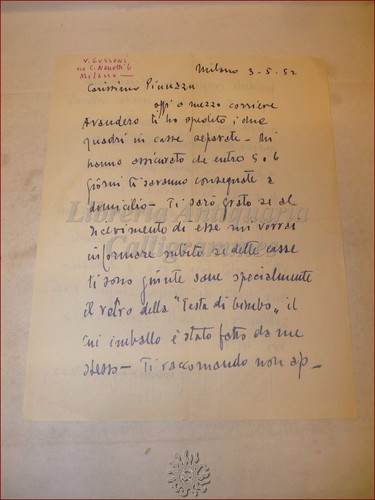 V. GUSSONI
via C. Nanetti 6
Milano
Milano 3-5-52
Carissimo
oggi a mezzo corriere
Avandero ti ho spedito i due
quadri in casse separate - Mi
hanno assicurato che entro 5 o 6
giorni ti saranno consegnate a
domicilio - Ti sarò grato se al
ricevimento di esse mi vorrai
informare subito se dette casse
ti sono giunte sane specialmente
il vetro della "Testa di bimbo", il
cui imballo è stato fatto da me
stesso - Ti raccomando non ap-
Libreria Antiquaria
Calligrammes